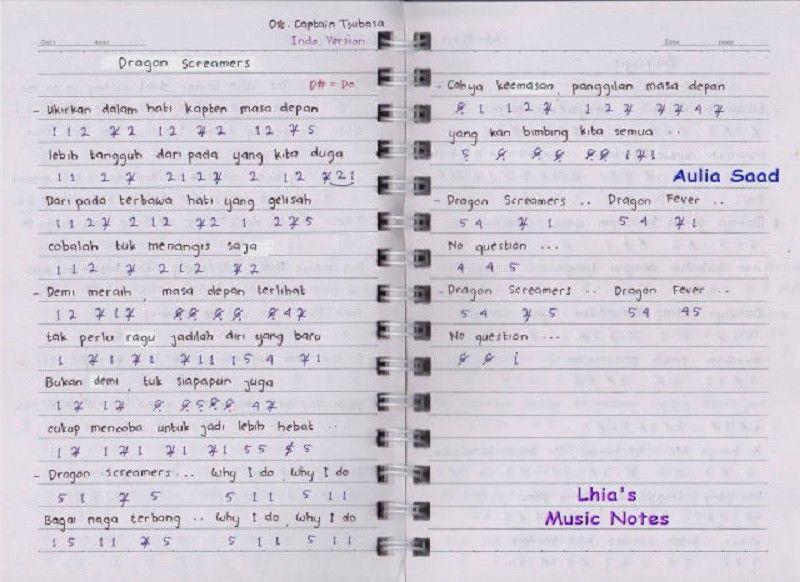 Ost. Captain Tsubasa
Indo. Version
Dragon Screamers
D# = Do
- Ukirkan dalam hati kapten masa depan
1 1 2 7 2 1 2 7 2 1 2 7 5
lebih tangguh dari pada yang kita duga
1 1 2 7 2 1 2 7 2 1 2 7 2 1
Dari pada terbawa hati yang gelisah
1 1 2 7 2 1 2 7 2 1 2 7 5
cobalah tuk menangis saja
1 1 2 7 2 1 2 7 2
- Demi meraih, masa depan terlihat
1 2 7 1 7
tak perlu ragu jadilah diri yang baru
1 7 1 7 1 7 1 1 1 5 4 7 1
Bukan demi, tuk siapapun juga
cukup mencoba untuk jadi lebih hebat ..
1 7 1 7 1 7 1 7 1 5 5 5 5
- Dragon screamers... Why I do, Why I do
5 1 7 5 5 1 1 5 1 1
Bagai naga terbang .. Why I do, Why I do
1 5 1 1 7 5 5 1 1 5 1 1
- Cahya keemasan, panggilan masa depan
6 1 1 2 7 1 2 7 7 7 4 7
yang kan bimbing kita semua ..
Aulia Saad
- Dragon Screamers .. Dragon Fever ..
5 4 7 1 5 4 7 1
No question ...
4 4 5
- Dragon Screamers .. Dragon Fever ...
5 4 7 5 5 4 4 5
No question ...
6 6 i
Lhia's
Music Notes